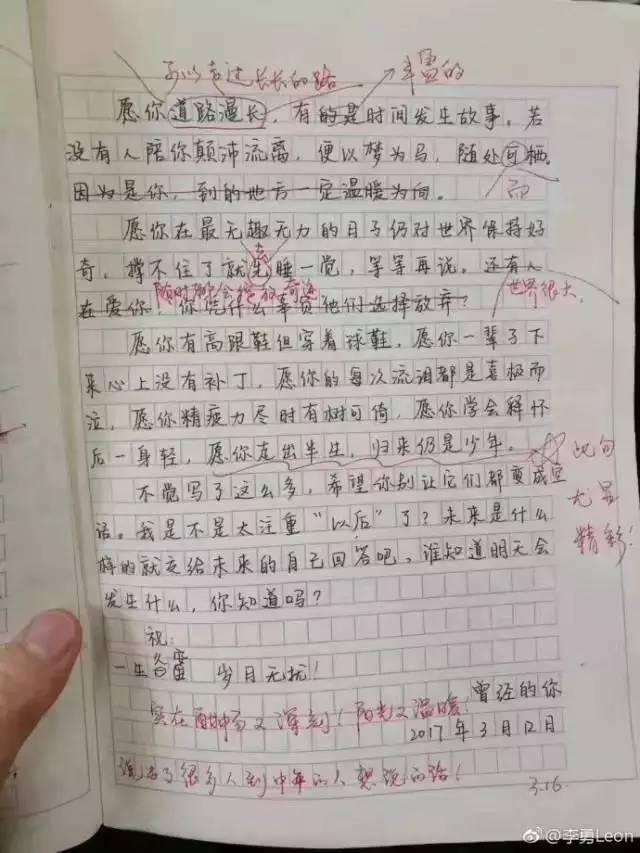 可以走过长长的路 丰盈的
愿你道路漫长，有的是时间发生故事。若
没有人陪你颠沛流离，便以梦为马，随处可栖。
因为是你，到的地方一定温暖为向。 而
愿你在最无趣无力的日子仍对世界保持好
奇，撑不住了就先睡一觉，等等再说。还有人
随时都会 奇迹
在爱你！你凭什么辜负他们选择放弃？ 世界很大，
愿你有高跟鞋但穿着球鞋，愿你一辈子下
来心上没有补丁，愿你的每次流泪都是喜极而
泣，愿你精疲力尽时有树可倚，愿你学会释怀
后一身轻，愿你走出半生，归来仍是少年。 此句
不觉写了这么多，希望你别让它们都变成空 尤另
话。我是不是太注重“以后”了？未来是什么 精彩！
样的就交给未来的自己回答吧，谁知道明天会
发生什么，你知道吗？
祝：
一生 岁月无扰！
曾经的你
实在酣畅又深刻！阳光又温暖！
2017年3月12日
说出了很多人到中年的人想说的话！
3.16
@李勇Leon